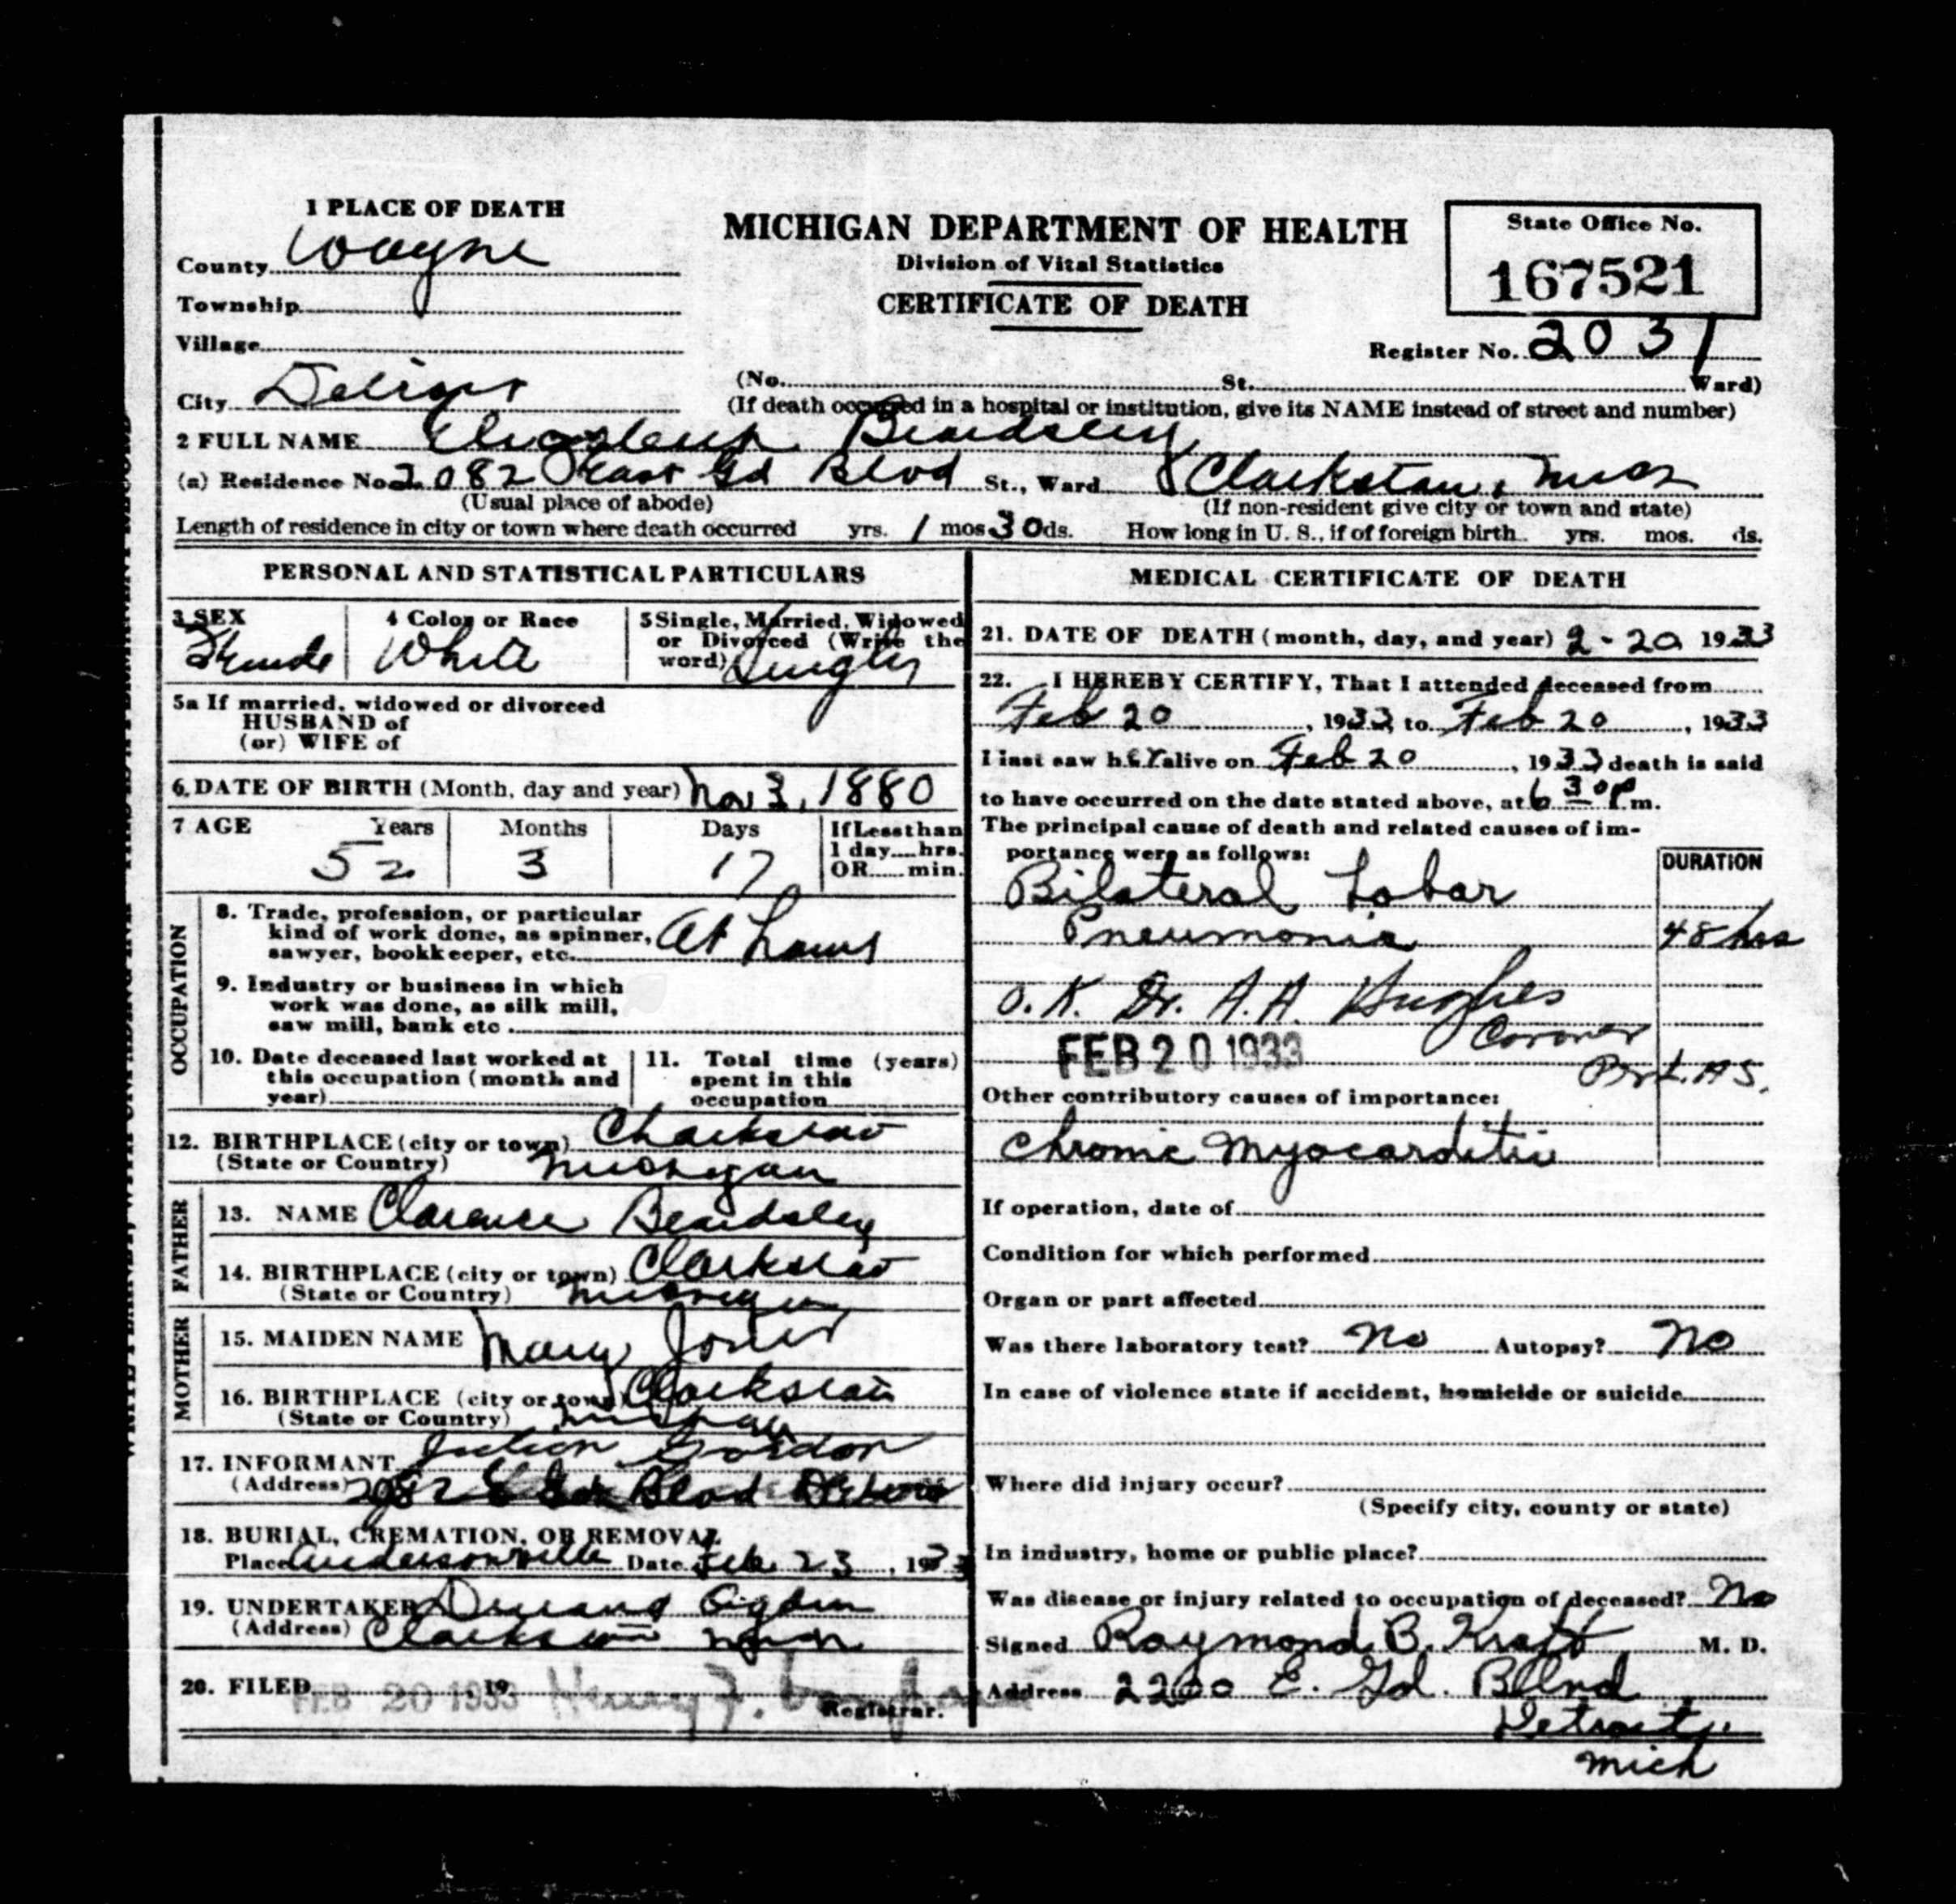 1 PLACE OF DEATH
County Wayne
Township
Village
City Detroit
MICHIGAN DEPARTMENT OF HEALTH
Division of Vital Statistics
CERTIFICATE OF DEATH
State Office No.
167521
Register No. 2031
(No. St. Ward)
(If death occurred in a hospital or institution, give its NAME instead of street and number)
2 FULL NAME Elizabeth Beardsley
(a) Residence No. 2082 East Gd Blvd St., Ward Clarkston, Mich
(Usual place of abode) (If non-resident give city or town and state)
Length of residence in city or town where death occurred yrs. 1 mos 30 ds. How long in U. S., if of foreign birth. yrs. mos. ds.
PERSONAL AND STATISTICAL PARTICULARS
3 SEX 4 Color or Race 5 Single, Married, Widowed
or Divorced (Write the
word)
Female White Single
5a If married, widowed or divorced
HUSBAND of
(or) WIFE of
6. DATE OF BIRTH (Month, day and year) Nov 3, 1880
7 AGE Years Months Days If Less than
1 day....hrs.
OR.....min.
52 3 17
OCCUPATION
8. Trade, profession, or particular
kind of work done, as spinner,
sawyer, bookkeeper, etc. At home
9. Industry or business in which
work was done, as silk mill,
saw mill, bank etc.
10. Date deceased last worked at
this occupation (month and
year)
11. Total time (years)
spent in this
occupation
12. BIRTHPLACE (city or town) Clarkston
(State or Country) Michigan
FATHER
13. NAME Clarence Beardsley
14. BIRTHPLACE (city or town) Clarkston
(State or Country) Michigan
MOTHER
15. MAIDEN NAME Mary Jones
16. BIRTHPLACE (city or town) Clarkston
(State or Country) Michigan
17. INFORMANT Gordon
(Address) 2082 E Gd Blvd Detroit
18. BURIAL, CREMATION, OR REMOVAL
Place Andersonville Date Feb 23, 1933
19. UNDERTAKER Ogden
(Address) Clarkston Mich
20. FILED FEB 20 1933 19 Henry F. Vaughan
Registrar.
MEDICAL CERTIFICATE OF DEATH
21. DATE OF DEATH (month, day, and year) 2-20 1933
22. I HEREBY CERTIFY, That I attended deceased from
Feb 20, 1933 to Feb 20, 1933
I last saw her alive on Feb 20, 1933 death is said
to have occurred on the date stated above, at 6 30 P m.
The principal cause of death and related causes of im-
portance were as follows:
DURATION
Bilateral Lobar
Pneumonia 48 hrs
O.K. Dr. A.A. Hughes
Coroner
FEB 20 1933
Other contributory causes of importance:
Chronic Myocarditis
If operation, date of
Condition for which performed
Organ or part affected
Was there laboratory test? No Autopsy? No
In case of violence state if accident, homicide or suicide
Where did injury occur?
(Specify city, county or state)
In industry, home or public place?
Was disease or injury related to occupation of deceased? No
Signed Raymond B. Kraft M. D.
Address 2200 E. Gd. Bllvd
Detroit,
Mich